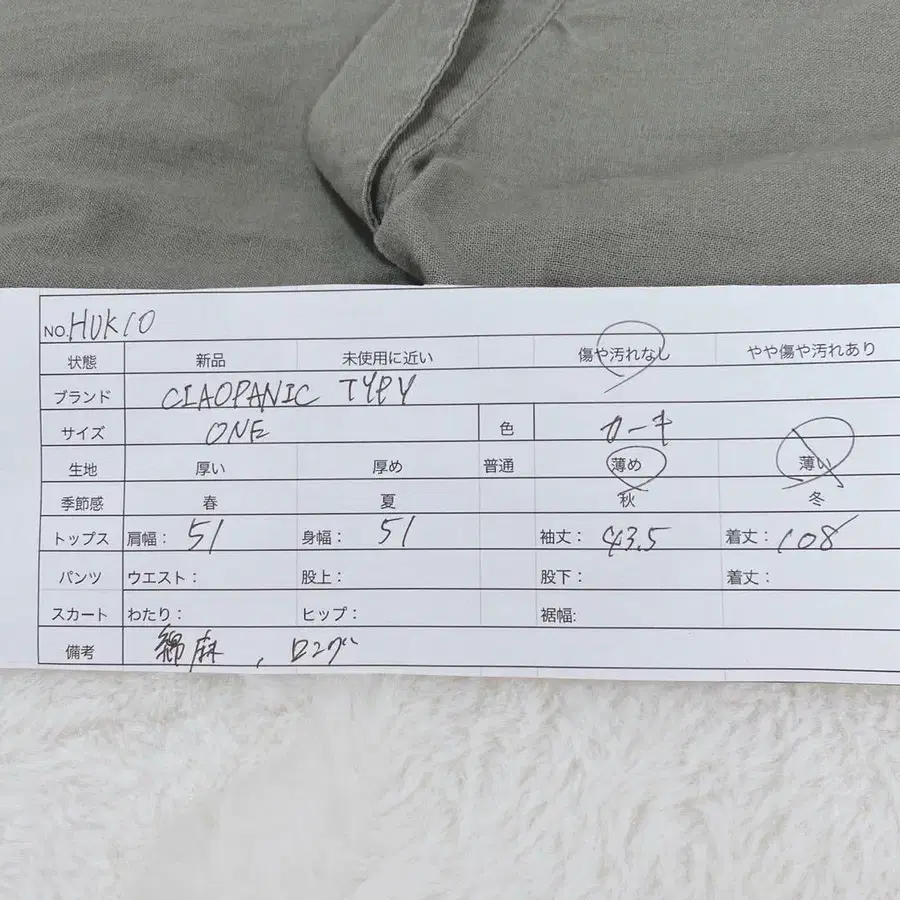 NO. HUK10
状態 新品 未使用に近い 傷や汚れなし やや傷や汚れあり
ブランド CIAOPANIC TYPY
サイズ ONE 色 カーキ
生地 厚い 厚め 普通 薄め 薄い
季節感 春 夏 秋 冬
トップス 肩幅: 51 身幅: 51 袖丈: 43.5 着丈: 108
パンツ ウエスト: 股上: 股下: 着丈:
スカート わたり: ヒップ: 裾幅:
備考 綿麻, ロング